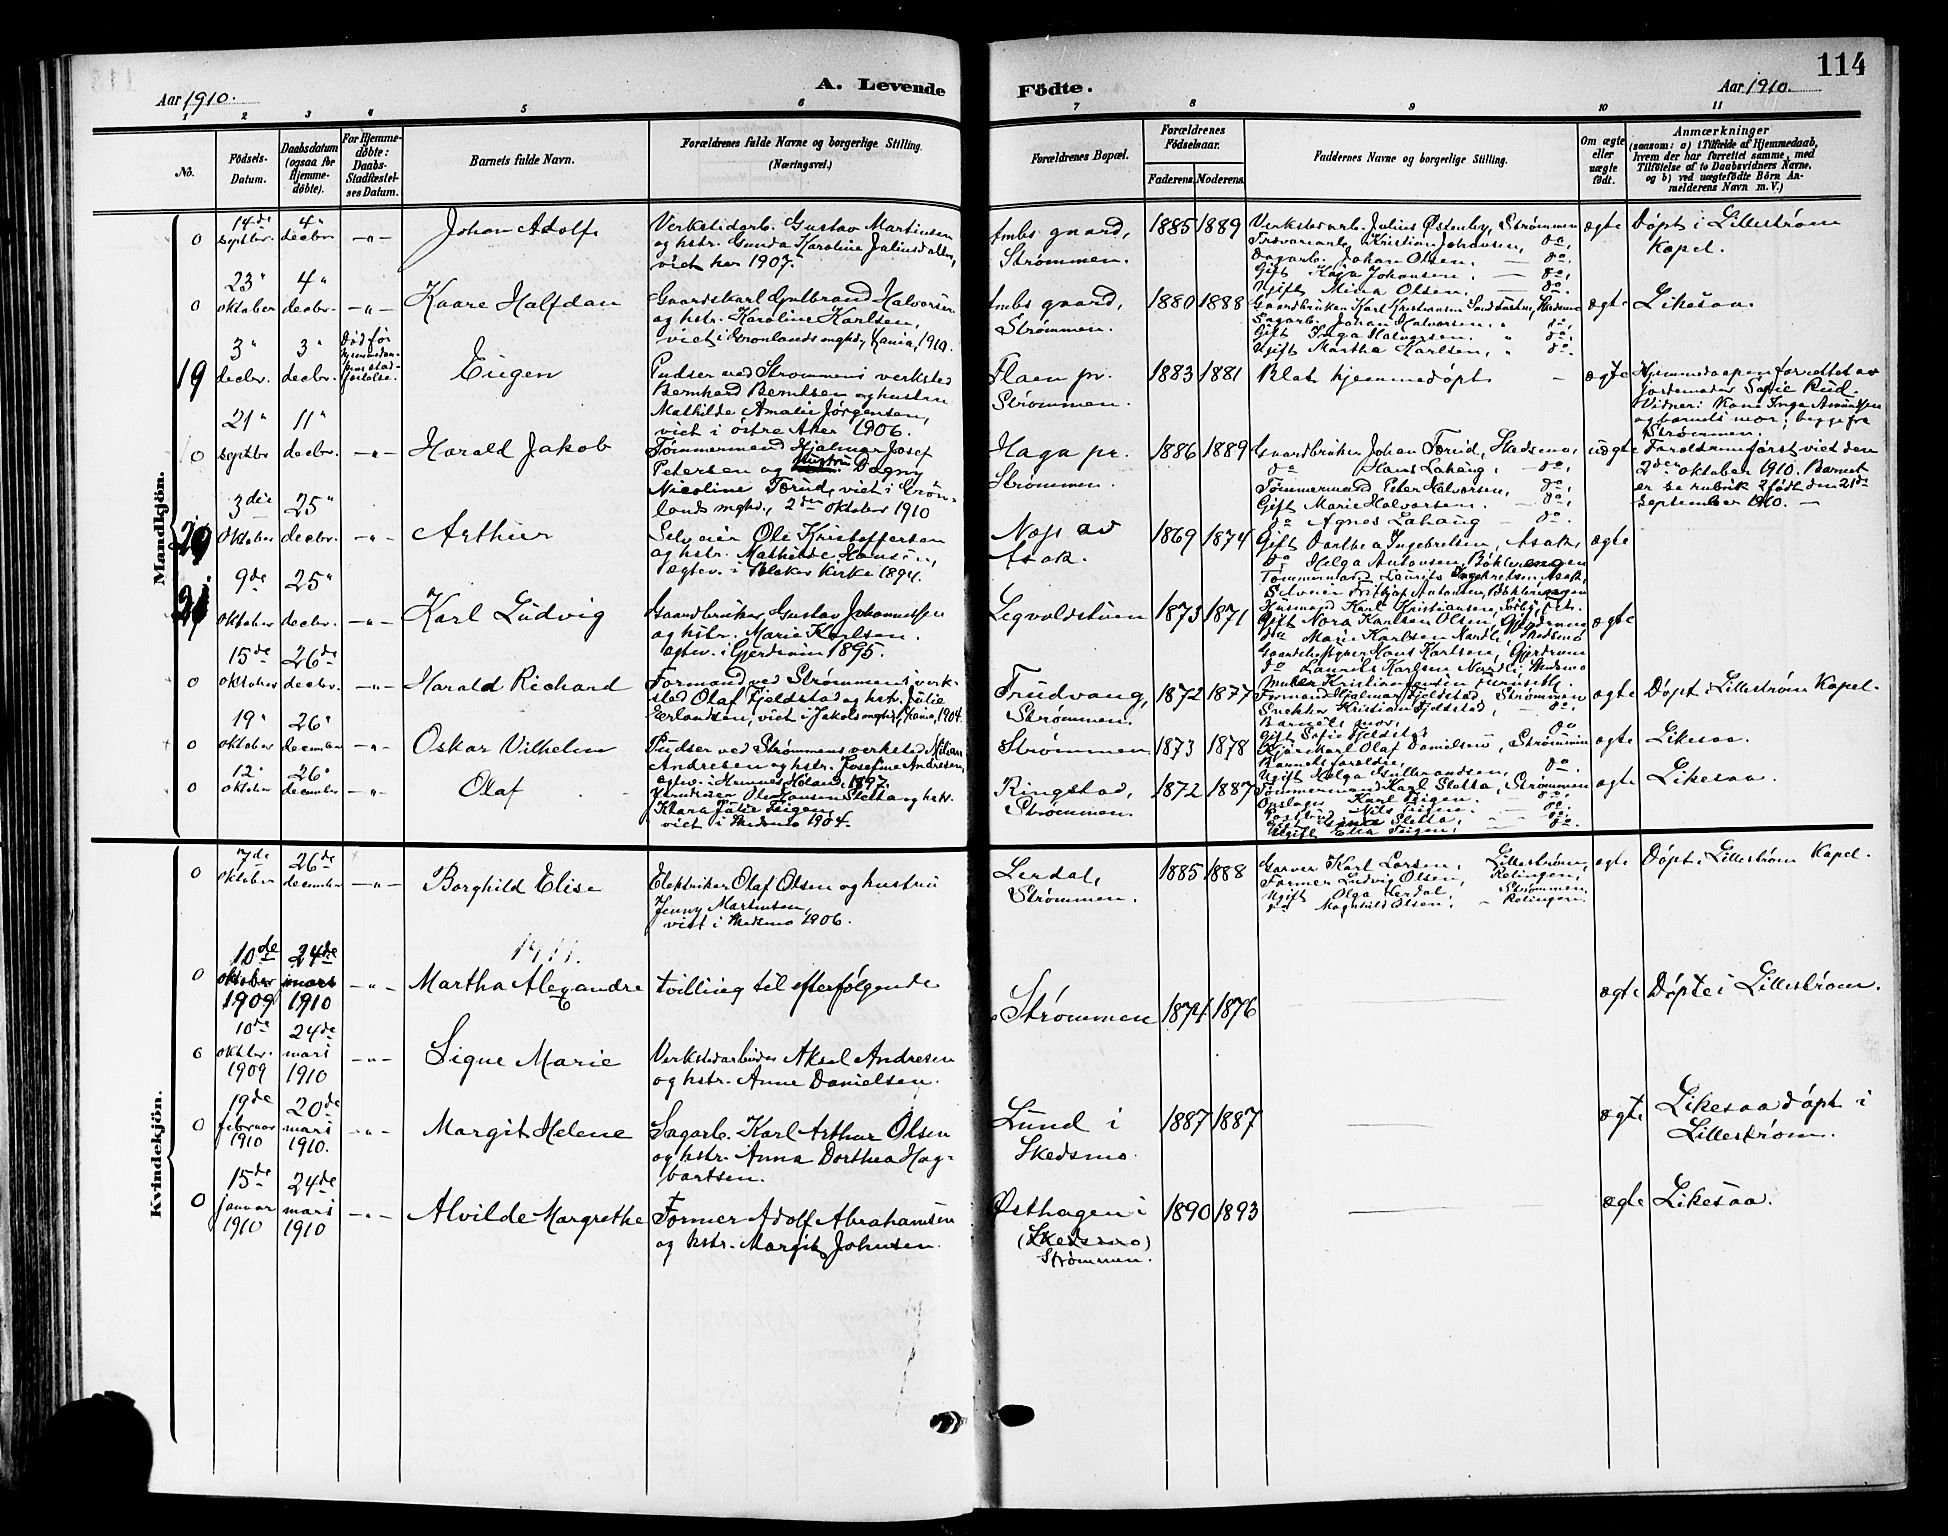 114
Aar 1910.
A. Levende
Födte.
Aar 1910.
1 2 3 4 5 6 7 8 9 10 11
No.
Födsels-
Datum.
Daabsdatum
(ogsaa for
Hjemme-
döbte).
For Hjemme-
döbte:
Daabs-
Stadfæstel-
ses Datum.
Barnets fulde Navn.
Forældrenes fulde Navne og borgerlige Stilling.
(Næringsvei.)
Forældrenes Bopæl.
Forældrenes
Födselsaar.
Faderens.
Moderens.
Faddernes Navne og borgerlige Stilling.
Om ægte
eller
uægte
födt.
Anmærkninger
(saasom: a) i Tilfælde af Hjemmedaab,
hvem der har forrettet samme, med
Tilföielse af to Daabsvidners Navne,
og b) ved uægtefödte Börn An-
melderens Navn m. V.)
Mandkjön.
0
14de
septbr.
4"
decbr.
-"-
Johan Adolf
Verkstedarb. Gustav Martinsen
og hstr. Gunda Karoline Juliusdatter,
viet her 1907.
gaard,
Strømmen.
1885 1889
Verkstedarb. Julius Østenby, Strømmen
Kristian Johansen, do.
Dagarb. Johan Olsen. — do.
Gift Kaja Johansen. — do.
Ugift Mina Olsen. — do.
ægte
Døpt i Lillestrøm
Kapel.
0
23"
oktober
4"
decbr.
-"-
Kaare Halfdan
Gaardskarl Gulbrand Halvorsen
og hstr. Karoline Karlsen,
viet i Grønlands mghd, Kania, 1910.
gaard,
Strømmen.
1880 1888
Gaardbruker Karl Kristiansen Skedsmo
Sagarb. Johan Halvorsen. " do.
Gift Inga Halvorsen. " do.
Ugift Martha Karlsen, " do.
ægte
Likesaa.
19
3"
decbr.
3"
decbr.
Død før
hjemmedaa-
bens stad-
festelse.
Eugen
Pudser ved Strømmens verksted
Bernhard Berntsen og hustru
Mathilde Amalie Jørgensen,
viet i østre Aker 1906.
Flaen pr.
Strømmen.
1883 1881
Blet hjemmedøpt —
ægte
Hjemmedaapen forrettet av
jordemoder Sofie Rud.
Vidner: Kone Inga Amundsen
og barnets mor; begge fra
Strømmen.
0
21"
septbr
11"
decbr.
-"-
Harald Jakob
Tømmermand Hjalmar Josef
Petersen og hustru Dagny
Nicoline Torud, viet i Grøn-
lands mghd., 2den oktober 1910
Haga pr.
Strømmen.
1886 1889
Gaardbruker Johan Torud, Skedsmo,
do Hans Lahaug, — do.
Tømmermand Peter Halvorsen, do.
Gift Marie Halvorsen. — do.
do Agnes Lahaug — do.
uægte
Forældrene først viet den
2den oktober 1910. Barnet
er se rubrik 2 født den 21de
september 1910. —
20
3die
oktober
25"
decbr.
-"-
Arthur
Selveier Ole Kristoffersen
og hstr. Mathilde Hansen,
ægtev. i Blaker kirke 1894.
av
Asak.
1869 1874
Gift Dorthea Ingebretsen, Asak,
do Helga Antonsen, Bøhlerengen
Tømmermand Laurits Ingebretsen, Asak,
Selveier Frithjof Antonsen, Bøhlerengen
ægte
21
9de
oktober
25"
decbr.
-"-
Karl Ludvig
Gaardbruker Gustav Johannessen
og hstr. Marie Karlsen.
ægtev. i Gjerdrum 1895.
Legvoldstuen
1873 1871
Husmand Karl Kristiansen,
Gift Nora Karlsen Olsen, Gjerdrum
do Marie Karlsen Nordli, Skedsmo
Hans Karlsen, Gjerdrum
do Laurits Karlsen Nordli, Skedsmo
ægte
0
15de
oktober
26de
decbr.
-"-
Harald Richard
Formand ved Strømmens verk-
sted Olaf Fjeldstad og hstr. Julie
Erlandsen, viet i Jakobs mghd, Kania, 1904.
Trudvang,
Strømmen.
1872 1877
Formand Hjalmar Fjeldstad, Strømmen
Snekker Kristian Fjeldstad, — do.
Barnets mor. do
Gift Sofie Fjeldstad
ægte
Døpt i Lillestrøm Kapel.
0
19"
oktober
26"
december
-"-
Oskar Vilhelm
Pudser ved Strømmens verksted
Andresen og hstr. Josefine Andresen,
ægtev. i Hemnes Høland, 1897.
Strømmen
1873 1878
Olaf Danielsen, Strømmen
Barnets forældre, do.
Ugift Helga Gulbrandsen, do.
ægte
Likesaa.
0
12"
oktober
26"
december
-"-
Olaf
Ole Hansen Sletta og hstr.
Klara Julie Teigen,
viet i Skedsmo 1904.
Ringstad,
Strømmen.
1872 1887
Tømmermand Karl Sletta, Strømmen
Karl Teigen. — do.
Nils Teigen. — do.
Sletta, — do.
Ugift Elsa Teigen, — do.
ægte
Likesaa.
Kvindekjön.
0
7de
oktober
26de
december
-"-
Borghild Elise
Elektriker Olaf Olsen og hustru
Jenny Martinsen,
viet i Skedsmo 1906.
Lerdal,
Strømmen.
1885 1888
Garver Karl Larsen, Lillestrøm,
Former Ludvig Olsen, Rælingen,
Ugift Olga Lerdal, Strømmen,
do Magnhild Olsen, Rælingen.
ægte
Døpt i Lillestrøm Kapel.
1911.
0
10de
oktober
1909
24de
mars
1910
-"-
Martha Alexandre
tvilling til efterfølgende
Strømmen
1874 1876
ægte
Døpte i Lillestrøm.
0
10de
oktbr.
1909
24de
mars
1910
-"-
Signe Marie
Verkstedarbeider Aksel Andresen
og hstr. Anne Danielsen.
0
19de
februar
1910
20de
mars
1910.
-"-
Margit Helene
Sagarb. Karl Arthur Olsen
og hstr. Anna Dorthea Hag-
bartsen.
Lund i
Skedsmo.
1887 1887
ægte
Likesaa døpt i
Lillestrøm.
0
15de
januar
1910
24de
mars
1910
-"-
Alvilde Margrethe
Former Adolf Abrahamsen
og hstr. Margit Johnsen.
Østhagen i
(Skedsmo)
Strømmen.
1890 1893
ægte
Likesaa.